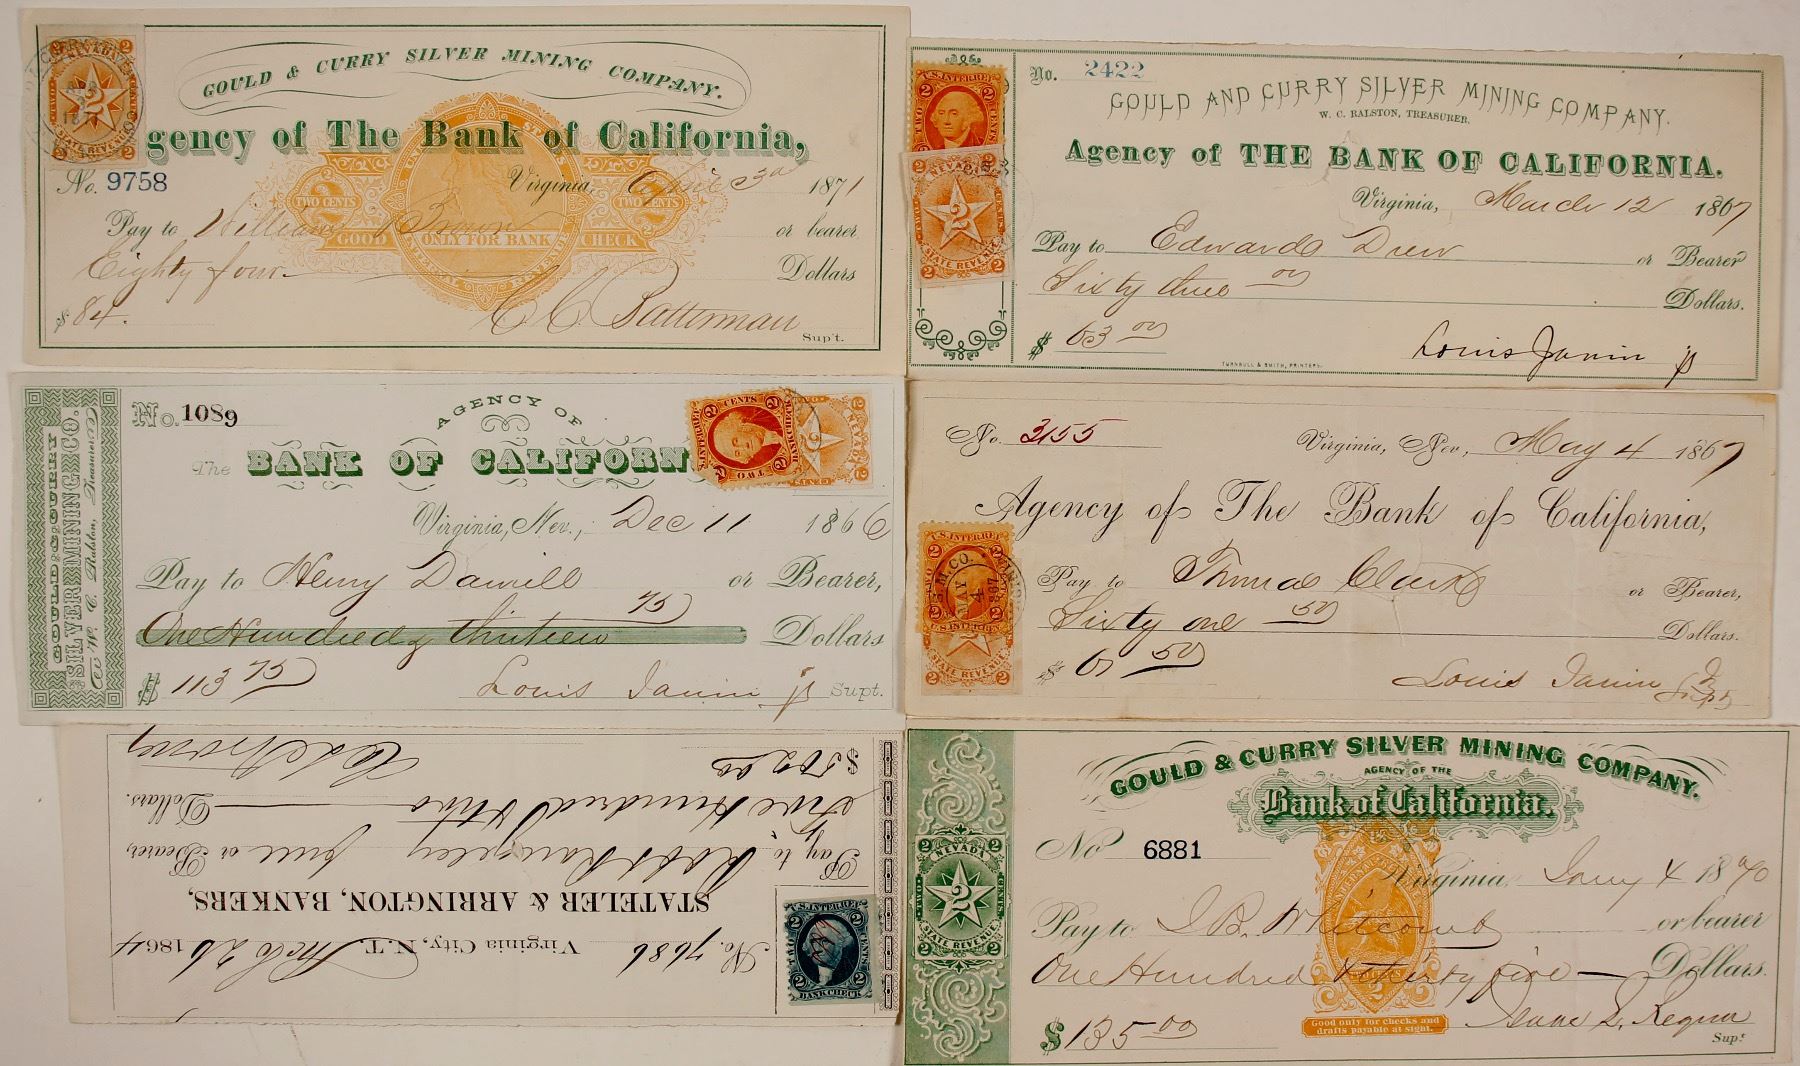 GOULD & CURRY SILVER MINING COMPANY.
gency of The Bank of California,
NEVADA
2 2
2
STATE REVENUE
No. 9758
Virginia, April 3d 1871
TWO CENTS TWO CENTS
Pay to William Brown or bearer
GOOD ONLY FOR BANK CHECK
Eighty four Dollars
$ 84.
C C Batterman
Sup't.
No. 2422
GOULD AND CURRY SILVER MINING COMPANY.
W. C. RALSTON, TREASURER.
Agency of THE BANK OF CALIFORNIA.
U.S. INTER. REV.
2 CENTS
2
STATE REVENUE
Virginia, March 12 1867
Pay to Edward Drew or Bearer
Sixty three 00 Dollars.
$ 63 00
Louis Janin jr
TURNBULL & SMITH, PRINTERS.
GOULD & CURRY
SILVER MINING CO.
W. C. Ralston, Treasurer
No. 1089
AGENCY OF
The BANK OF CALIFORN
U.S. INTER. REV.
2 CENTS 2
BANK CHECK
TWO
Virginia, Nev., Dec 11 1866
Pay to Henry Dawill or Bearer,
One Hundred & thirteen 75 Dollars
$ 113 75
Louis Janin jr Supt.
No. 3155
Virginia, Nev, May 4 1867
Agency of The Bank of California,
U.S. INTER. REV.
MAY
4
1867
STATE REVENUE
Pay to Thomas Clark or Bearer,
Sixty one 50 Dollars.
$ 61 50
Louis Janin Jr
No. 7686
Virginia City, N.T. 26 1864
STATELER & ARRINGTON, BANKERS,
U.S. INTER. REV.
2 2
BANK CHECK
Pay to Robt or Bearer,
Five Hundred & two Dollars.
$ 502.00
GOULD & CURRY SILVER MINING COMPANY.
AGENCY OF THE
Bank of California.
No 6881
NEVADA
TWO 2 CENTS
STATE REVENUE
Virginia, Jany 4 1870
Pay to J B. Whitcomb or bearer
One Hundred & thirty five Dollars.
$ 135 00
Good only for checks and
drafts payable at sight.
Isaac L. Requa
Supt